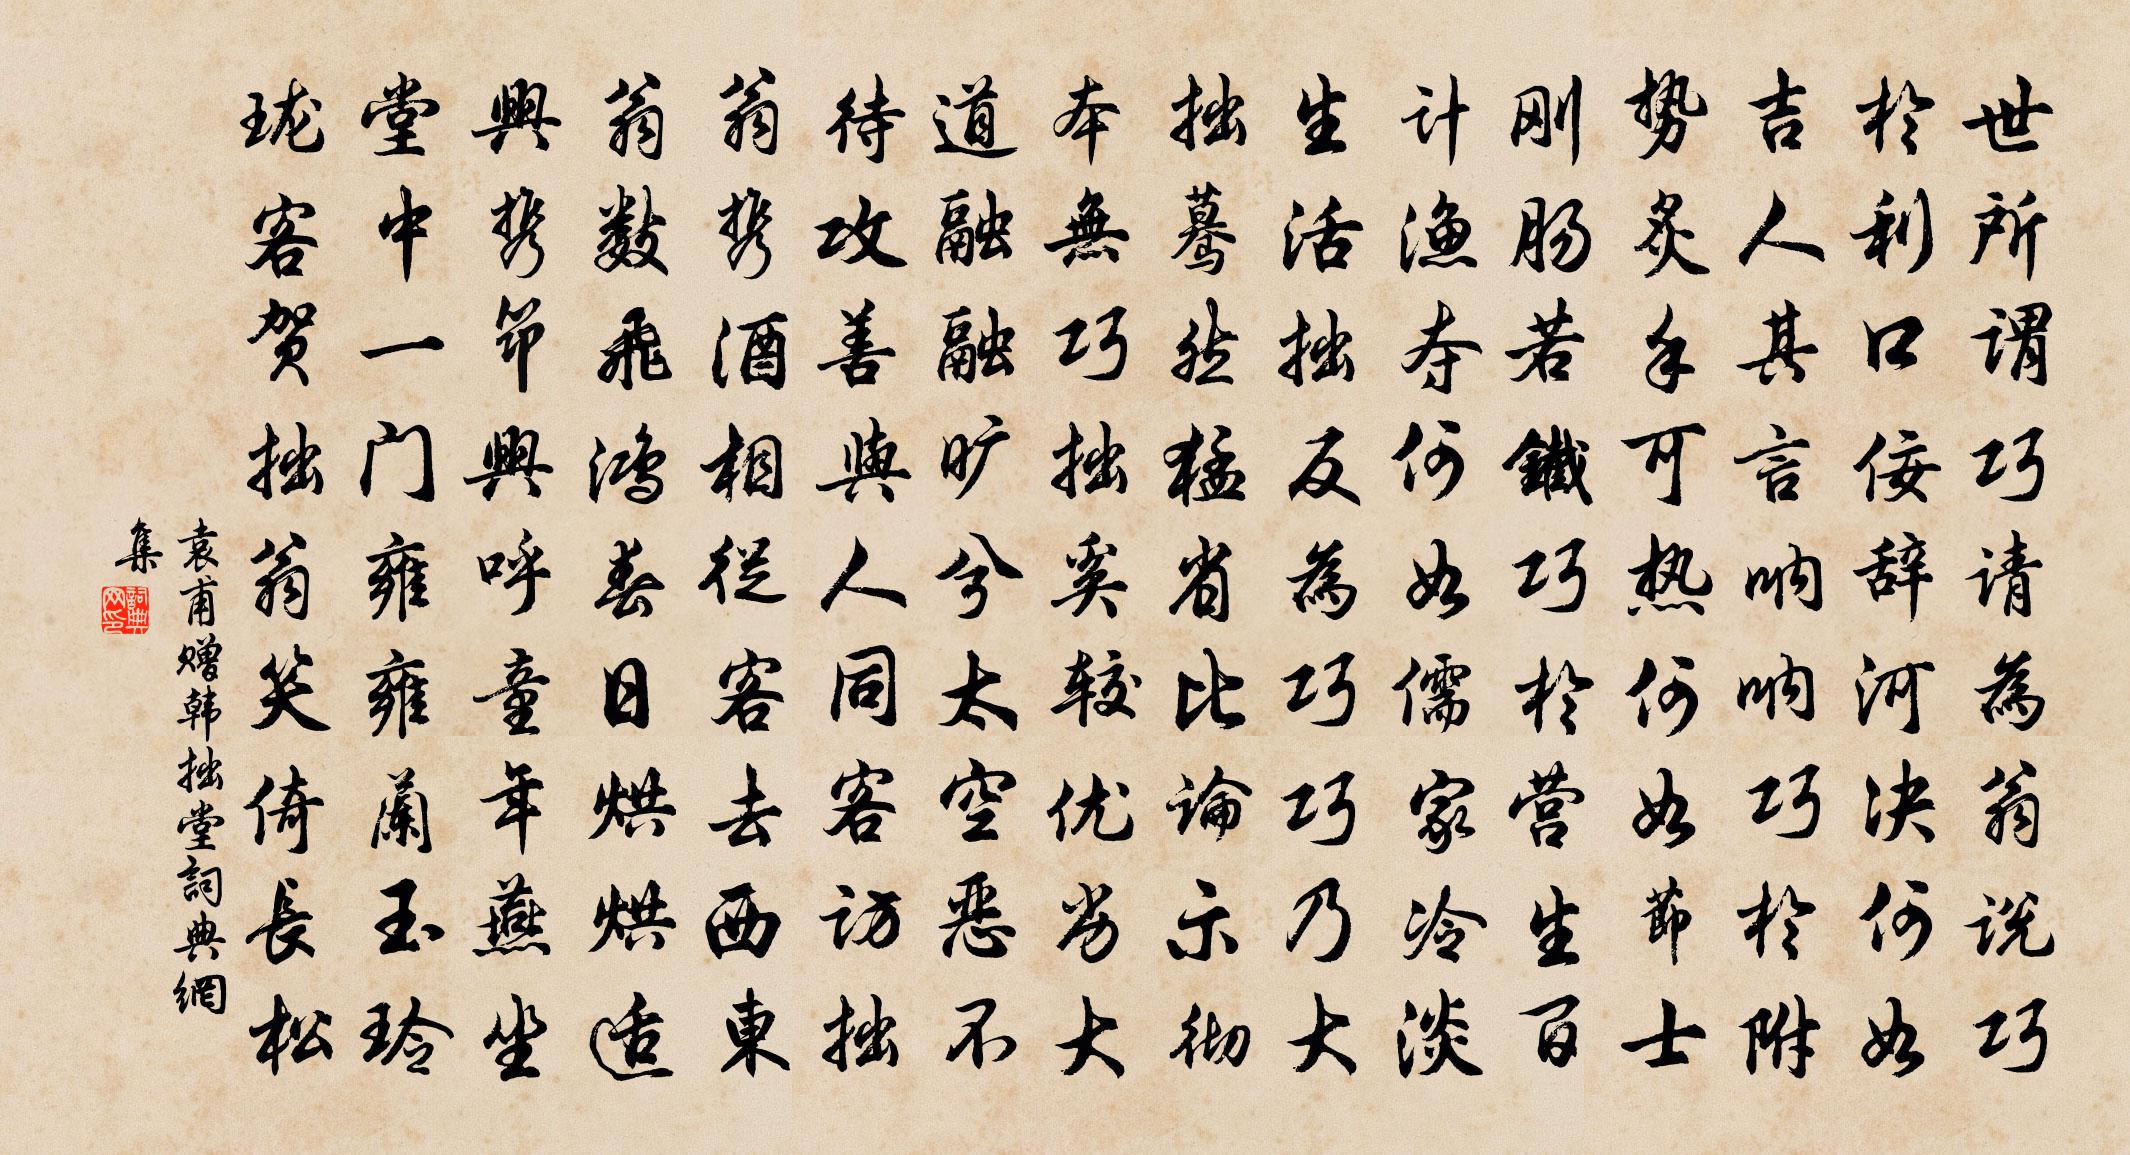 世所谓巧请為翁说巧
於利口佞辞河决何如
吉人其言呐呐巧於附
势炙手可热何如节士
刚肠若鐵巧於营生百
计渔夺何如儒家冷淡
生活拙反為巧巧乃大
拙蓦然猛省比论示彻
本無巧拙奚较优劣大
道融融旷兮太空恶不
待攻善與人同客访拙
翁携酒相從客去西東
翁数飛鸿春日烘烘适
興携笻興呼童年燕坐
堂中一门雍雍蘭玉玲
珑客贺拙翁笑倚長松
袁甫赠韩拙堂詞典網
集
詞典网印